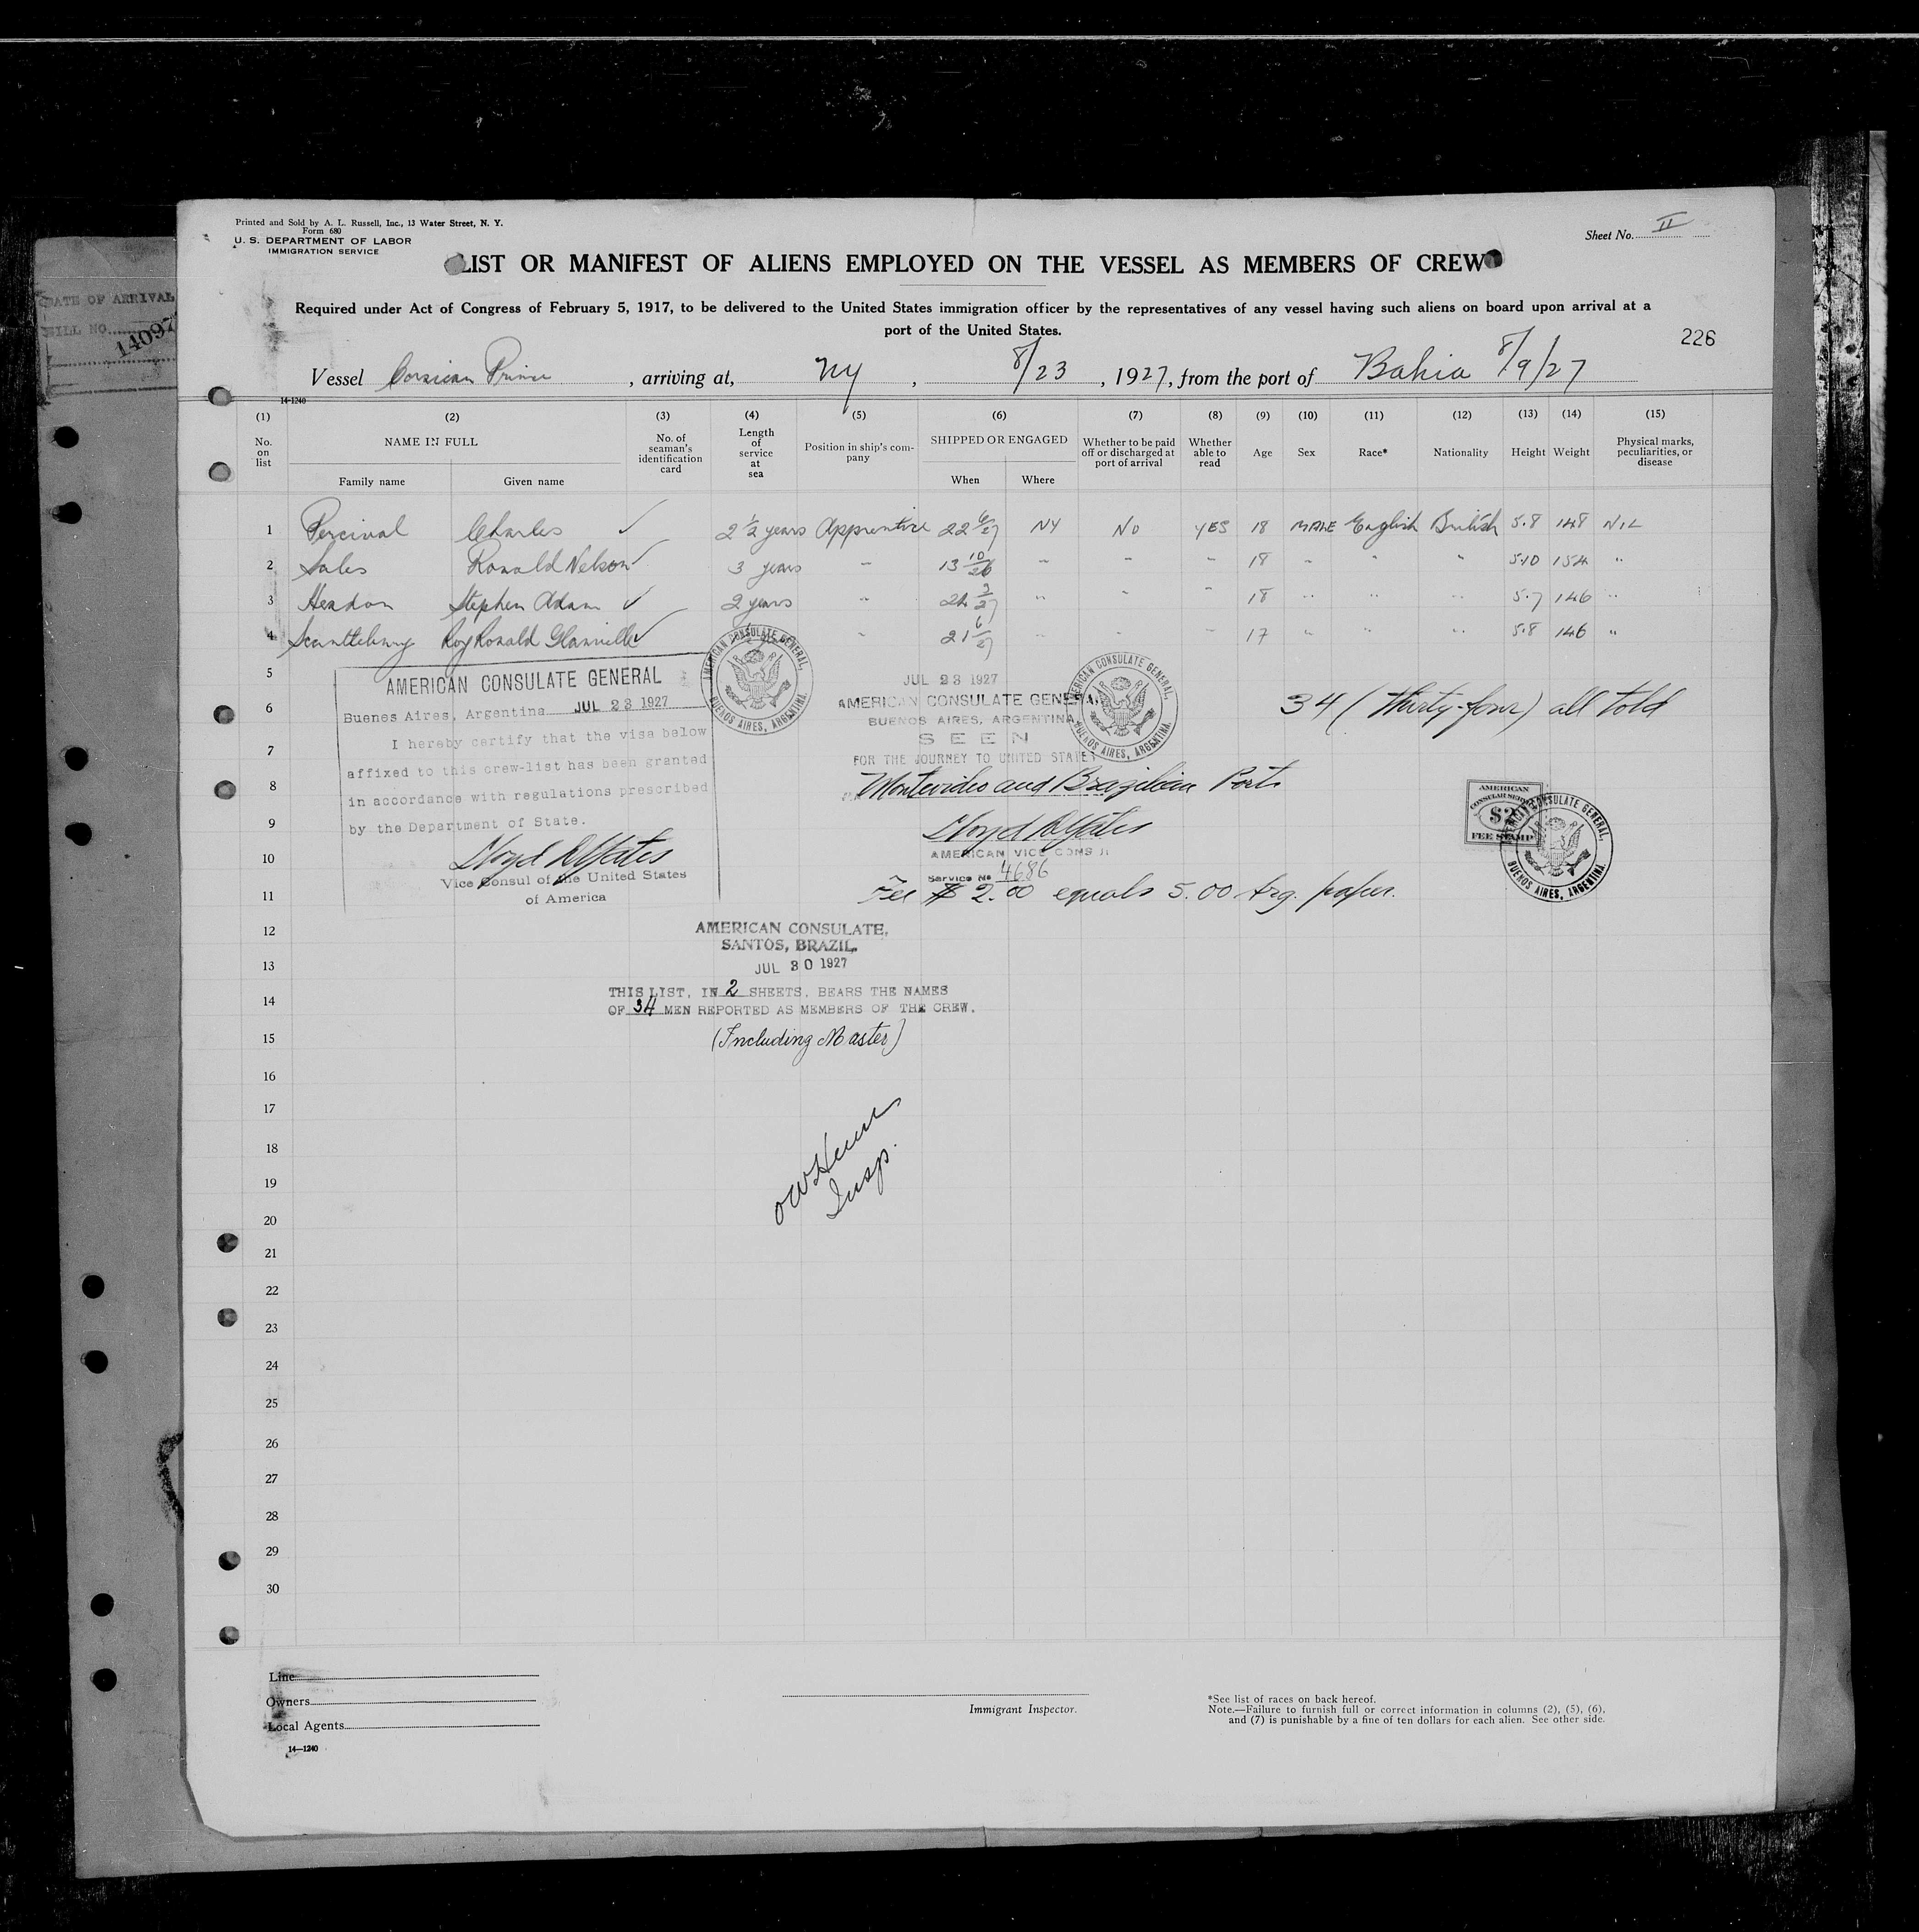 Printed and Sold by A. L. Russell, Inc., 13 Water Street, N. Y.
Form 680
U. S. DEPARTMENT OF LABOR
IMMIGRATION SERVICE
Sheet No. II
LIST OR MANIFEST OF ALIENS EMPLOYED ON THE VESSEL AS MEMBERS OF CREW
Required under Act of Congress of February 5, 1917, to be delivered to the United States immigration officer by the representatives of any vessel having such aliens on board upon arrival at a
port of the United States.
226
DATE OF ARRIVAL
14097
Vessel Corsican Prince, arriving at, NY, 8/23, 1927, from the port of Bahia 8/9/27
14-1240
(1) (2) (3) (4) (5) (6) (7) (8) (9) (10) (11) (12) (13) (14) (15)
No. on list
NAME IN FULL
Family name Given name
No. of seaman's identification card
Length of service at sea
Position in ship's company
SHIPPED OR ENGAGED
When Where
Whether to be paid off or discharged at port of arrival
Whether able to read
Age Sex Race* Nationality Height Weight
Physical marks, peculiarities, or disease
1 Percival Charles ✓ 2 1/2 years Apprentice 22 6/27 NY No YES 18 MALE English British 5.8 148 NIL
2 Sales Ronald Nelson ✓ 3 years " 13 10/26 " " " 18 " " " 5.10 154 "
3 Headon Stephen Adam ✓ 2 years " 24 3/27 " " " 18 " " " 5.7 146 "
4 Scantlebury Roy Ronald Glanville ✓ " 21 6/27 " " " 17 " " " 5.8 146 "
5
6
7
8
9
10
11
12
13
14
15
16
17
18
19
20
21
22
23
24
25
26
27
28
29
30
AMERICAN CONSULATE GENERAL
Buenos Aires, Argentina JUL 23 1927
I hereby certify that the visa below
affixed to this crew-list has been granted
in accordance with regulations prescribed
by the Department of State.
Lloyd D Yates
Vice Consul of the United States
of America
AMERICAN CONSULATE GENERAL, BUENOS AIRES, ARGENTINA.
JUL 23 1927
AMERICAN CONSULATE GENERAL
BUENOS AIRES, ARGENTINA
SEEN
FOR THE JOURNEY TO UNITED STATES
Montevideo and Brazilian Ports
Lloyd D Yates
AMERICAN VICE CONSUL
Service No 4686
Fee $ 2.00 equals 5.00 Arg. paper.
AMERICAN CONSULATE GENERAL, BUENOS AIRES, ARGENTINA.
34 (Thirty-four) all told
AMERICAN
CONSULAR SERVICE
$2
FEE STAMP
AMERICAN CONSULATE GENERAL, BUENOS AIRES, ARGENTINA.
AMERICAN CONSULATE,
SANTOS, BRAZIL,
JUL 30 1927
THIS LIST, IN 2 SHEETS, BEARS THE NAMES
OF 34 MEN REPORTED AS MEMBERS OF THE CREW.
(Including Master)
Insp.
Line
Owners
Local Agents
14—1240
Immigrant Inspector.
*See list of races on back hereof.
Note.—Failure to furnish full or correct information in columns (2), (5), (6),
and (7) is punishable by a fine of ten dollars for each alien. See other side.